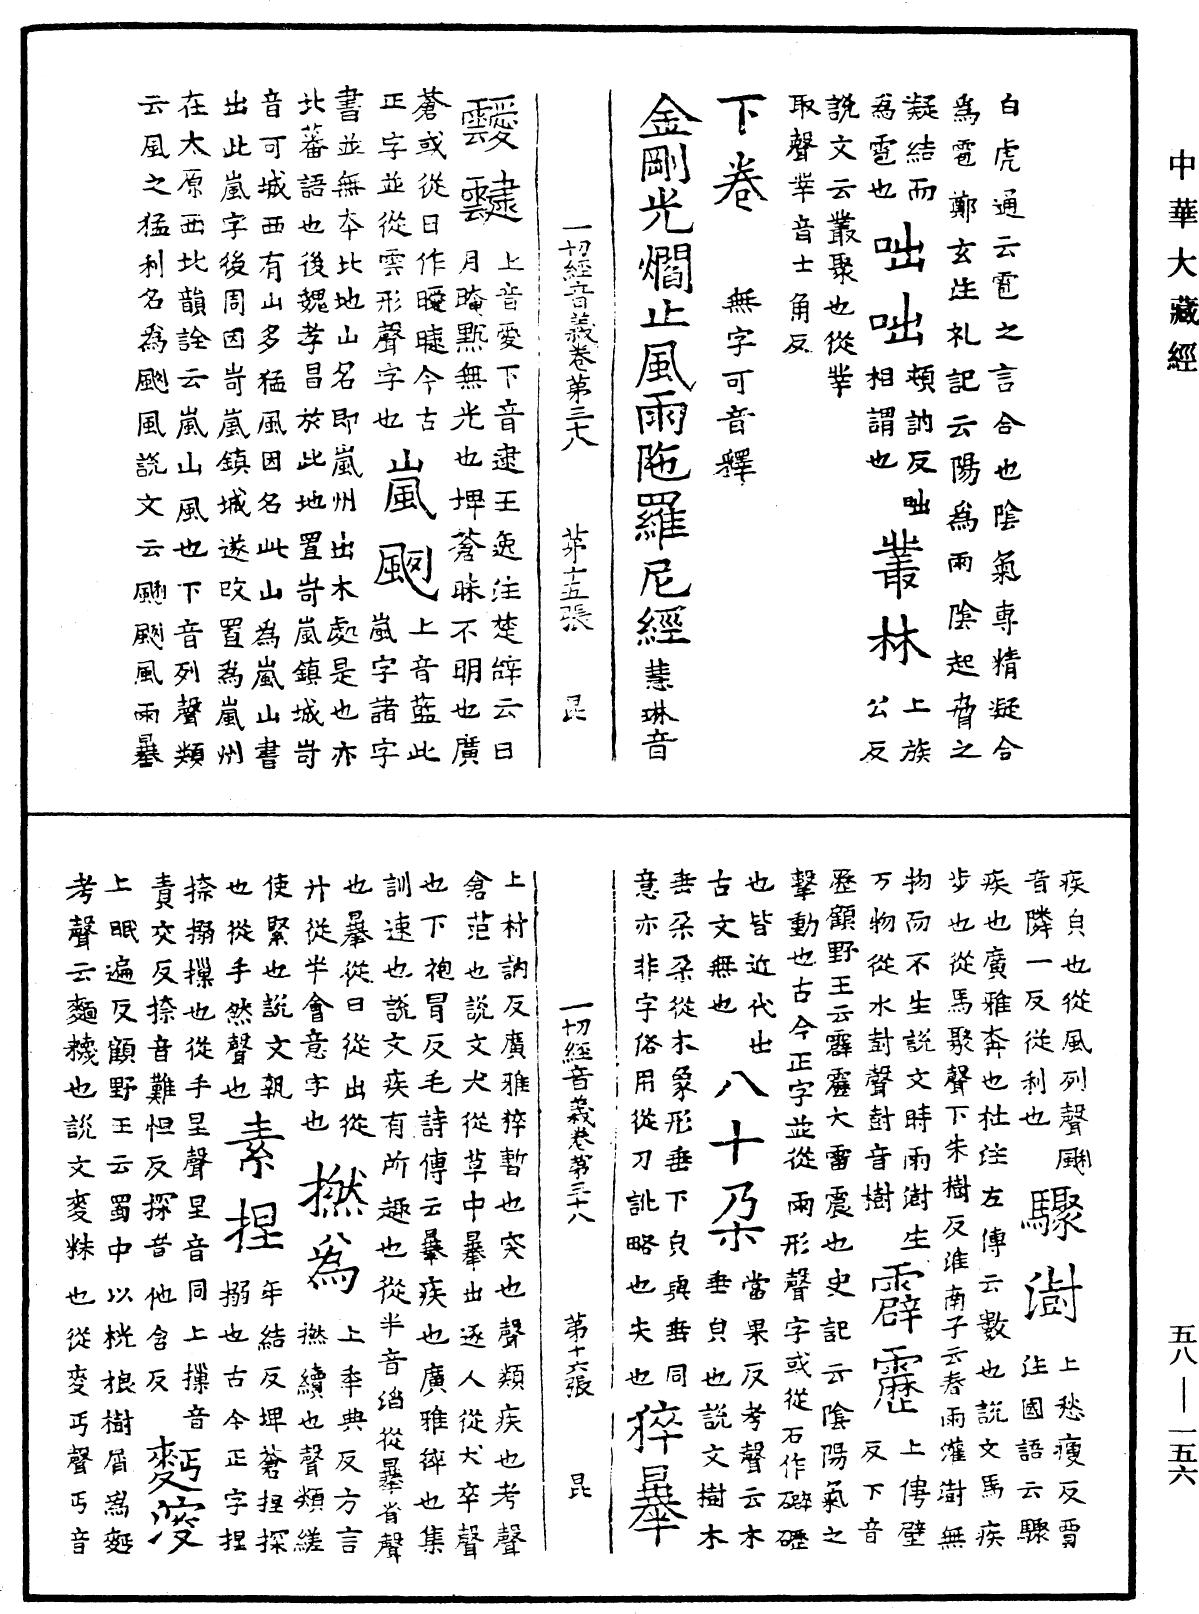 中華大藏經
白虎通云雹之言合也陰氣專精凝合
為雹鄭玄注礼記云陽為雨陰起脅之
凝結而
為雹也
咄咄
頓訥反咄
相謂也
叢林
上族
公反
說文云叢聚也從丵
取聲丵音士角反
下卷
無字可音釋
金剛光爓止風雨陁羅尼經
慧琳音
一切經音義卷第三十八　第十五張　昆
靉靆
上音愛下音逮王逸注楚辝云日
月晻黕無光也埤蒼昧不明也廣
蒼或從日作曖曃今古
正字並從雲形聲字也
嵐颲
上音藍此
嵐字諸字
書並無本北地山名即嵐州出木處是也亦
北蕃語也後魏孝昌於此地置岢嵐鎮城岢
音可城西有山多猛風因名此山為嵐山書
出此嵐字後周因岢嵐鎮城遂改置為嵐州
在太原西北韻詮云嵐山風也下音列聲類
云風之猛利名為颲風說文云颲颲風雨暴
疾皃也從風列聲颲
音隣一反從利也
驟澍
上愁瘦反賈
注國語云驟
疾也廣雅奔也杜注左傳云數也說文馬疾
步也從馬聚聲下朱樹反淮南子云春雨灌澍無
物而不生說文時雨澍生
万物從水尌聲尌音樹
霹靂
上俜壁
反下音
歷顧野王云霹靂大雷震也史記云陰陽氣之
擊動也古今正字並從雨形聲字或從石作礔礰
也皆近代出
古文無也
八十朶
當果反考聲云木
垂皃也說文樹木
垂朶朶從木象形垂下皃與垂同
意亦非字俗用從刀訛略也失也
猝暴
一切經音義卷第三十八　第十六張　昆
上村訥反廣雅猝暫也突也聲類疾也考聲
倉茫也說文犬從草中暴出逐人從犬卒聲
也下袍冒反毛詩傳云暴疾也廣雅猝也集
訓速也說文疾有所趣也從半音滔從暴省聲
也暴從日從出從
廾從半會意字也
撚為
上秊典反方言
撚續也聲類緩
使緊也說文執
也從手然聲也
素捏
年結反埤蒼捏探
搦也古今正字捏
捺搦㩎也從手呈聲呈音同上㩎音
責交反捺音難怛反探昔他含反
麪𥹥
上眠遍反顧野王云蜀中以桄桹樹屑為麪
考聲云麵䊳也說文麥䊳也從麥丏聲丏音
五八——一五六